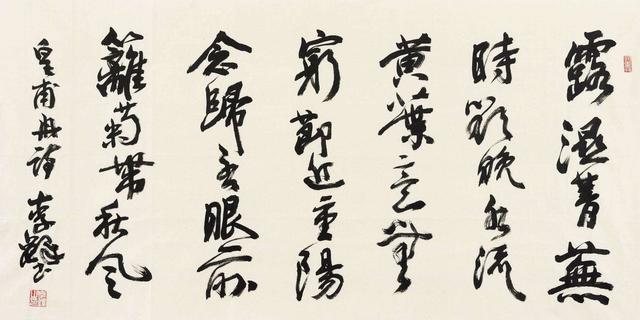 露濕菁蕪
時欲晚水流
黃葉意無
窮節近重陽
念歸否眼前
籬菊帶秋風
皇甫冉詩 李